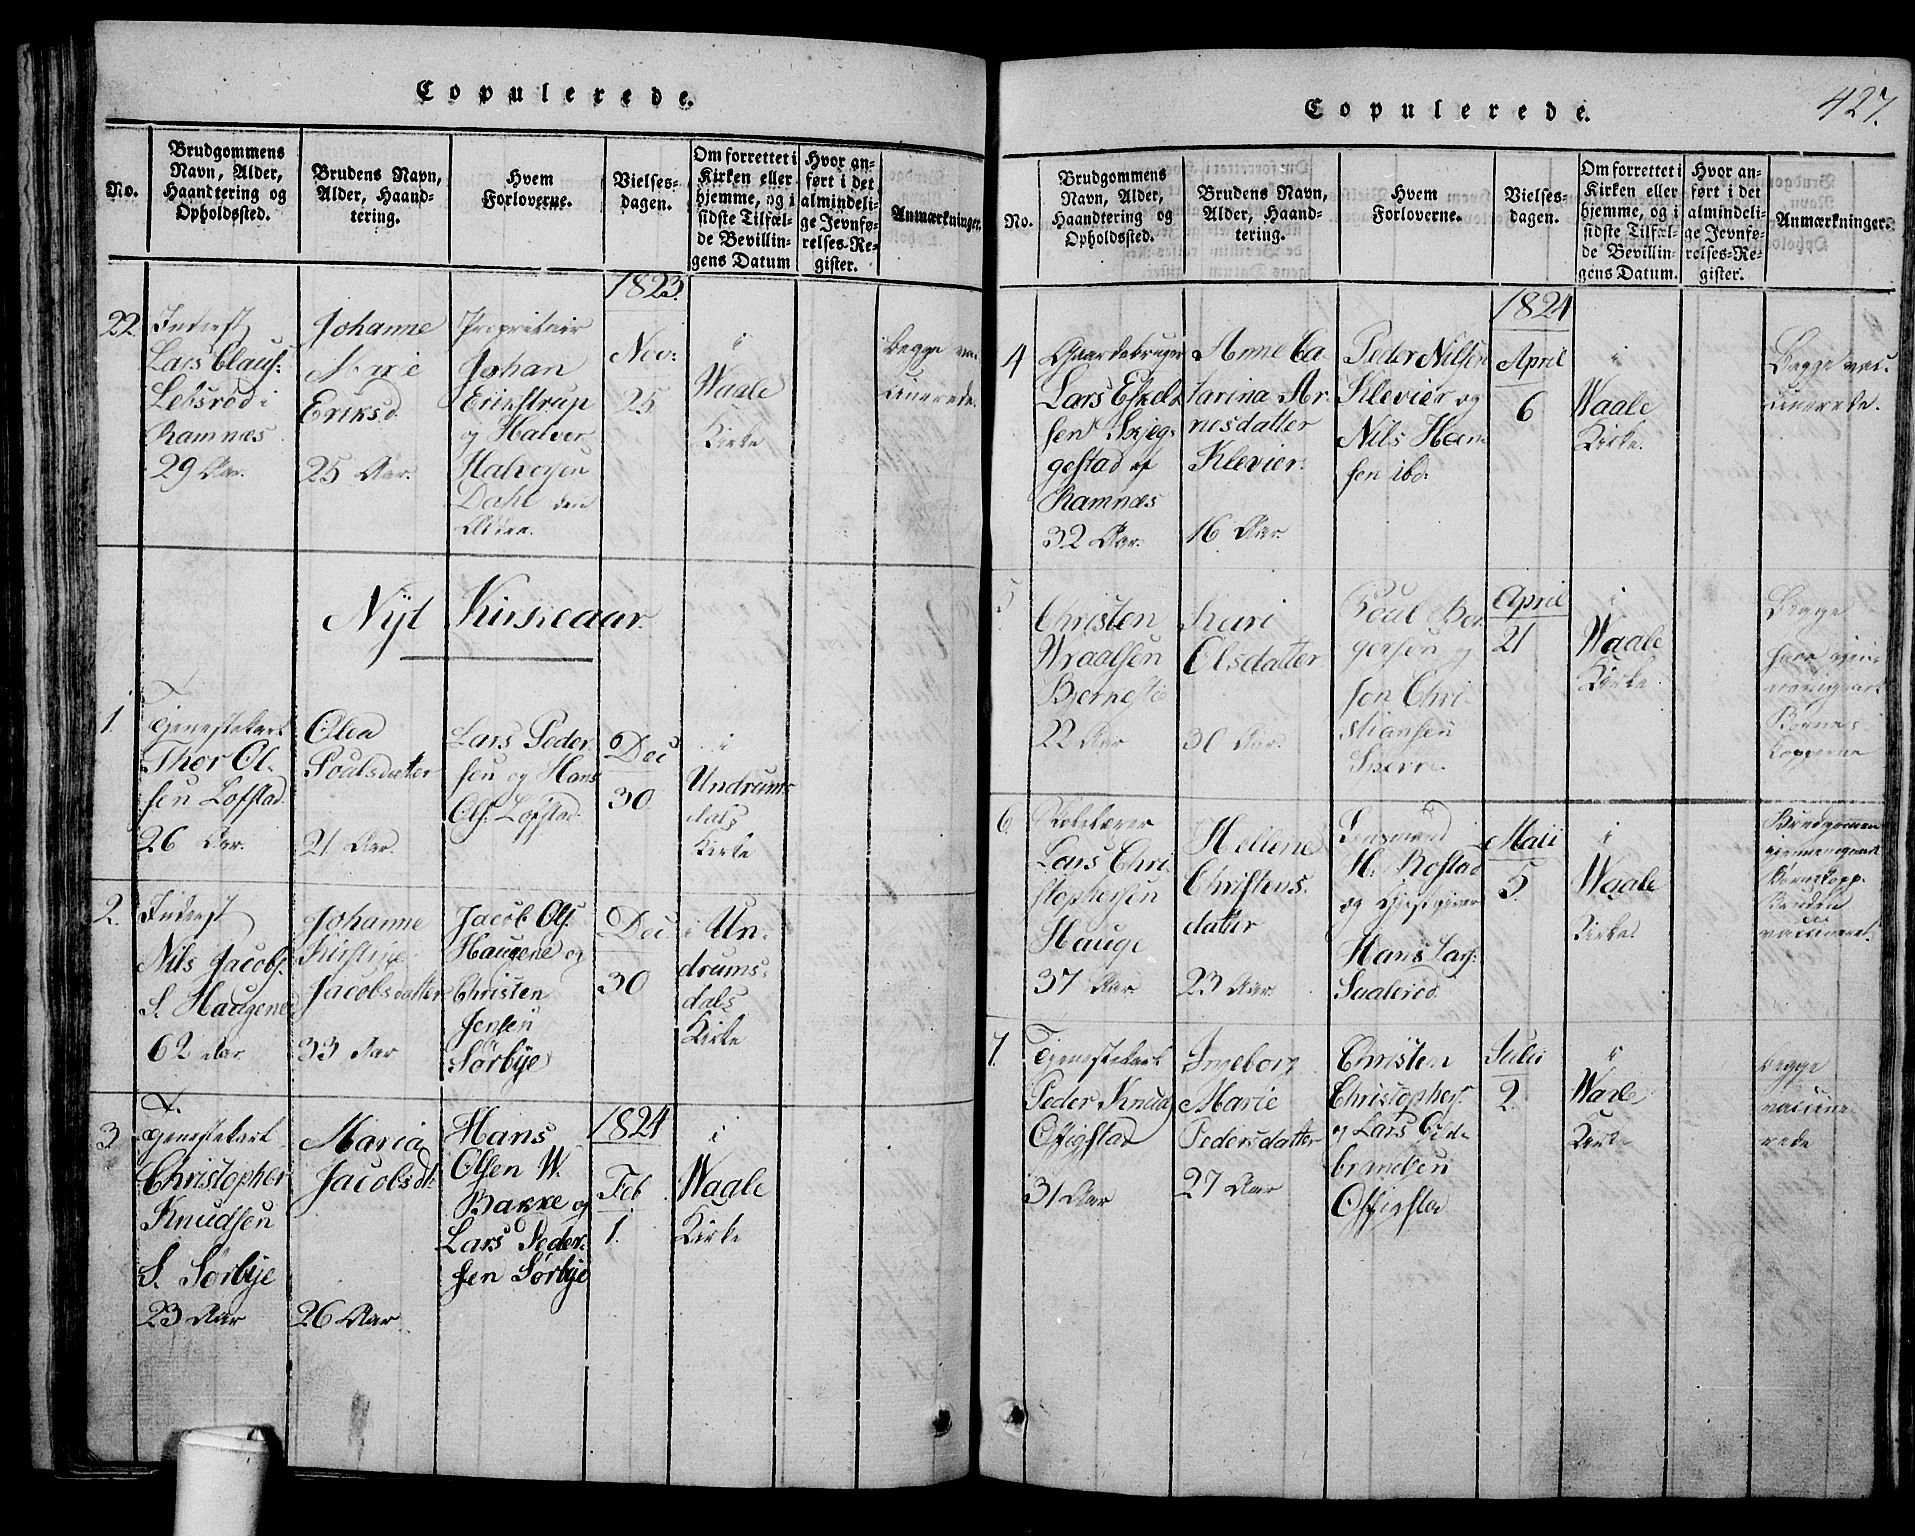 Copulerede.
No.
Brudgommens
Navn, Alder,
Haandtering og
Opholdssted.
Brudens Navn,
Alder, Haand-
tering.
Hvem
Forloverne.
Vielses-
dagen.
Om forrettet i
Kirken eller
hjemme, og i
sidste Tilfæl-
de Bevillin-
gens Datum
Hvor an-
ført i det
almindeli-
ge Jevnfø-
relses-Re-
gister.
Anmærkninger.
22
Inderst
Lars Clauss:
Lebsrød i
Ramnæs
29 Aar.
Johanne
Marie
Eriksd.
25 Aar.
Proprietair
Johan
Erikstrup
og Halver
Halvorsen
Dahl den
Ældre.
1823.
Nov:
25
i
Waale
Kirke
Begge vac-
cinerede.
Nyt Kirkeaar.
1.
Tjenestekarl
Thor Ol-
sen Lofstad.
26 Aar.
Olea
Poulsdatter
21 Aar.
Lars Peder-
sen og Hans
Ols: Lofstad.
Dec
30
i
Undrums
dals
Kirke
2.
Inderst
Nils Jacobs:
S. Haugene
62 Aar
Johanne
Kirstine
Jacobsdatter
33 Aar
Jacob Ols:
Haugene og
Christen
Jensen
Sørbye
Dec.
30
i Un-
drums-
dals
Kirke
3
Tjenestekarl
Christopher
Knudsen
S. Sørbye
23 Aar
Maria
Jacobsdt:
26 Aar.
Hans
Olsen W.
Bakke og
Lars Peder-
sen Sørbye
1824
Feb
1.
i
Waale
Kirke
Copulerede.
427.
No.
Brudgommens
Navn, Alder,
Haandtering og
Opholdssted.
Brudens Navn,
Alder, Haand-
tering.
Hvem
Forloverne.
Vielses-
dagen.
Om forrettet i
Kirken eller
hjemme, og i
sidste Tilfæl-
de Bevillin-
gens Datum.
Hvor an-
ført i det
almindeli-
ge Jevnfø-
relses-Re-
gister.
Anmærkninger.
4
Gaardebruger
Lars Eskeld
sen Skjeg-
gestad af
Ramnæs
32 Aar.
Anne Ca-
tarina Ar-
nesdatter
Klevier.
16 Aar.
Peder Nilsen
Klevier og
Nils Han-
sen ibd:
1824
April
6
i
Waale
Kirke.
Begge vac-
cinerede.
5
Christen
Wraalsen
22 Aar
Kari
Olsdatter
30 Aar.
Poul Bor-
gersen og
Chri-
stiansen
April
21
i
Waale
Kirke
Begge
have gjen-
nemgaaet
Børne-
kopperne
6
Skolelærer
Lars Chri-
stophersen
Hauge
37 Aar.
Hellene
Christens-
datter
23 Aar.
Lensmand
H. Rostad
og Gjestgiver
Hans Lars:
Saalerød.
Maii
5.
i
Waale
Kirke
Brudgommen
gjennemgaaet
Børnekopp.
Bruden
vaccineret.
7.
Tjenestekarl
Peder Knud
31 Aar
Ingeborg
Marie
Pedersdatter
27 Aar
Christen
Christophers:
og Lars Guld-
brandsen
Julii
2.
i
Waale
Kirke
Begge
vaccine-
rede